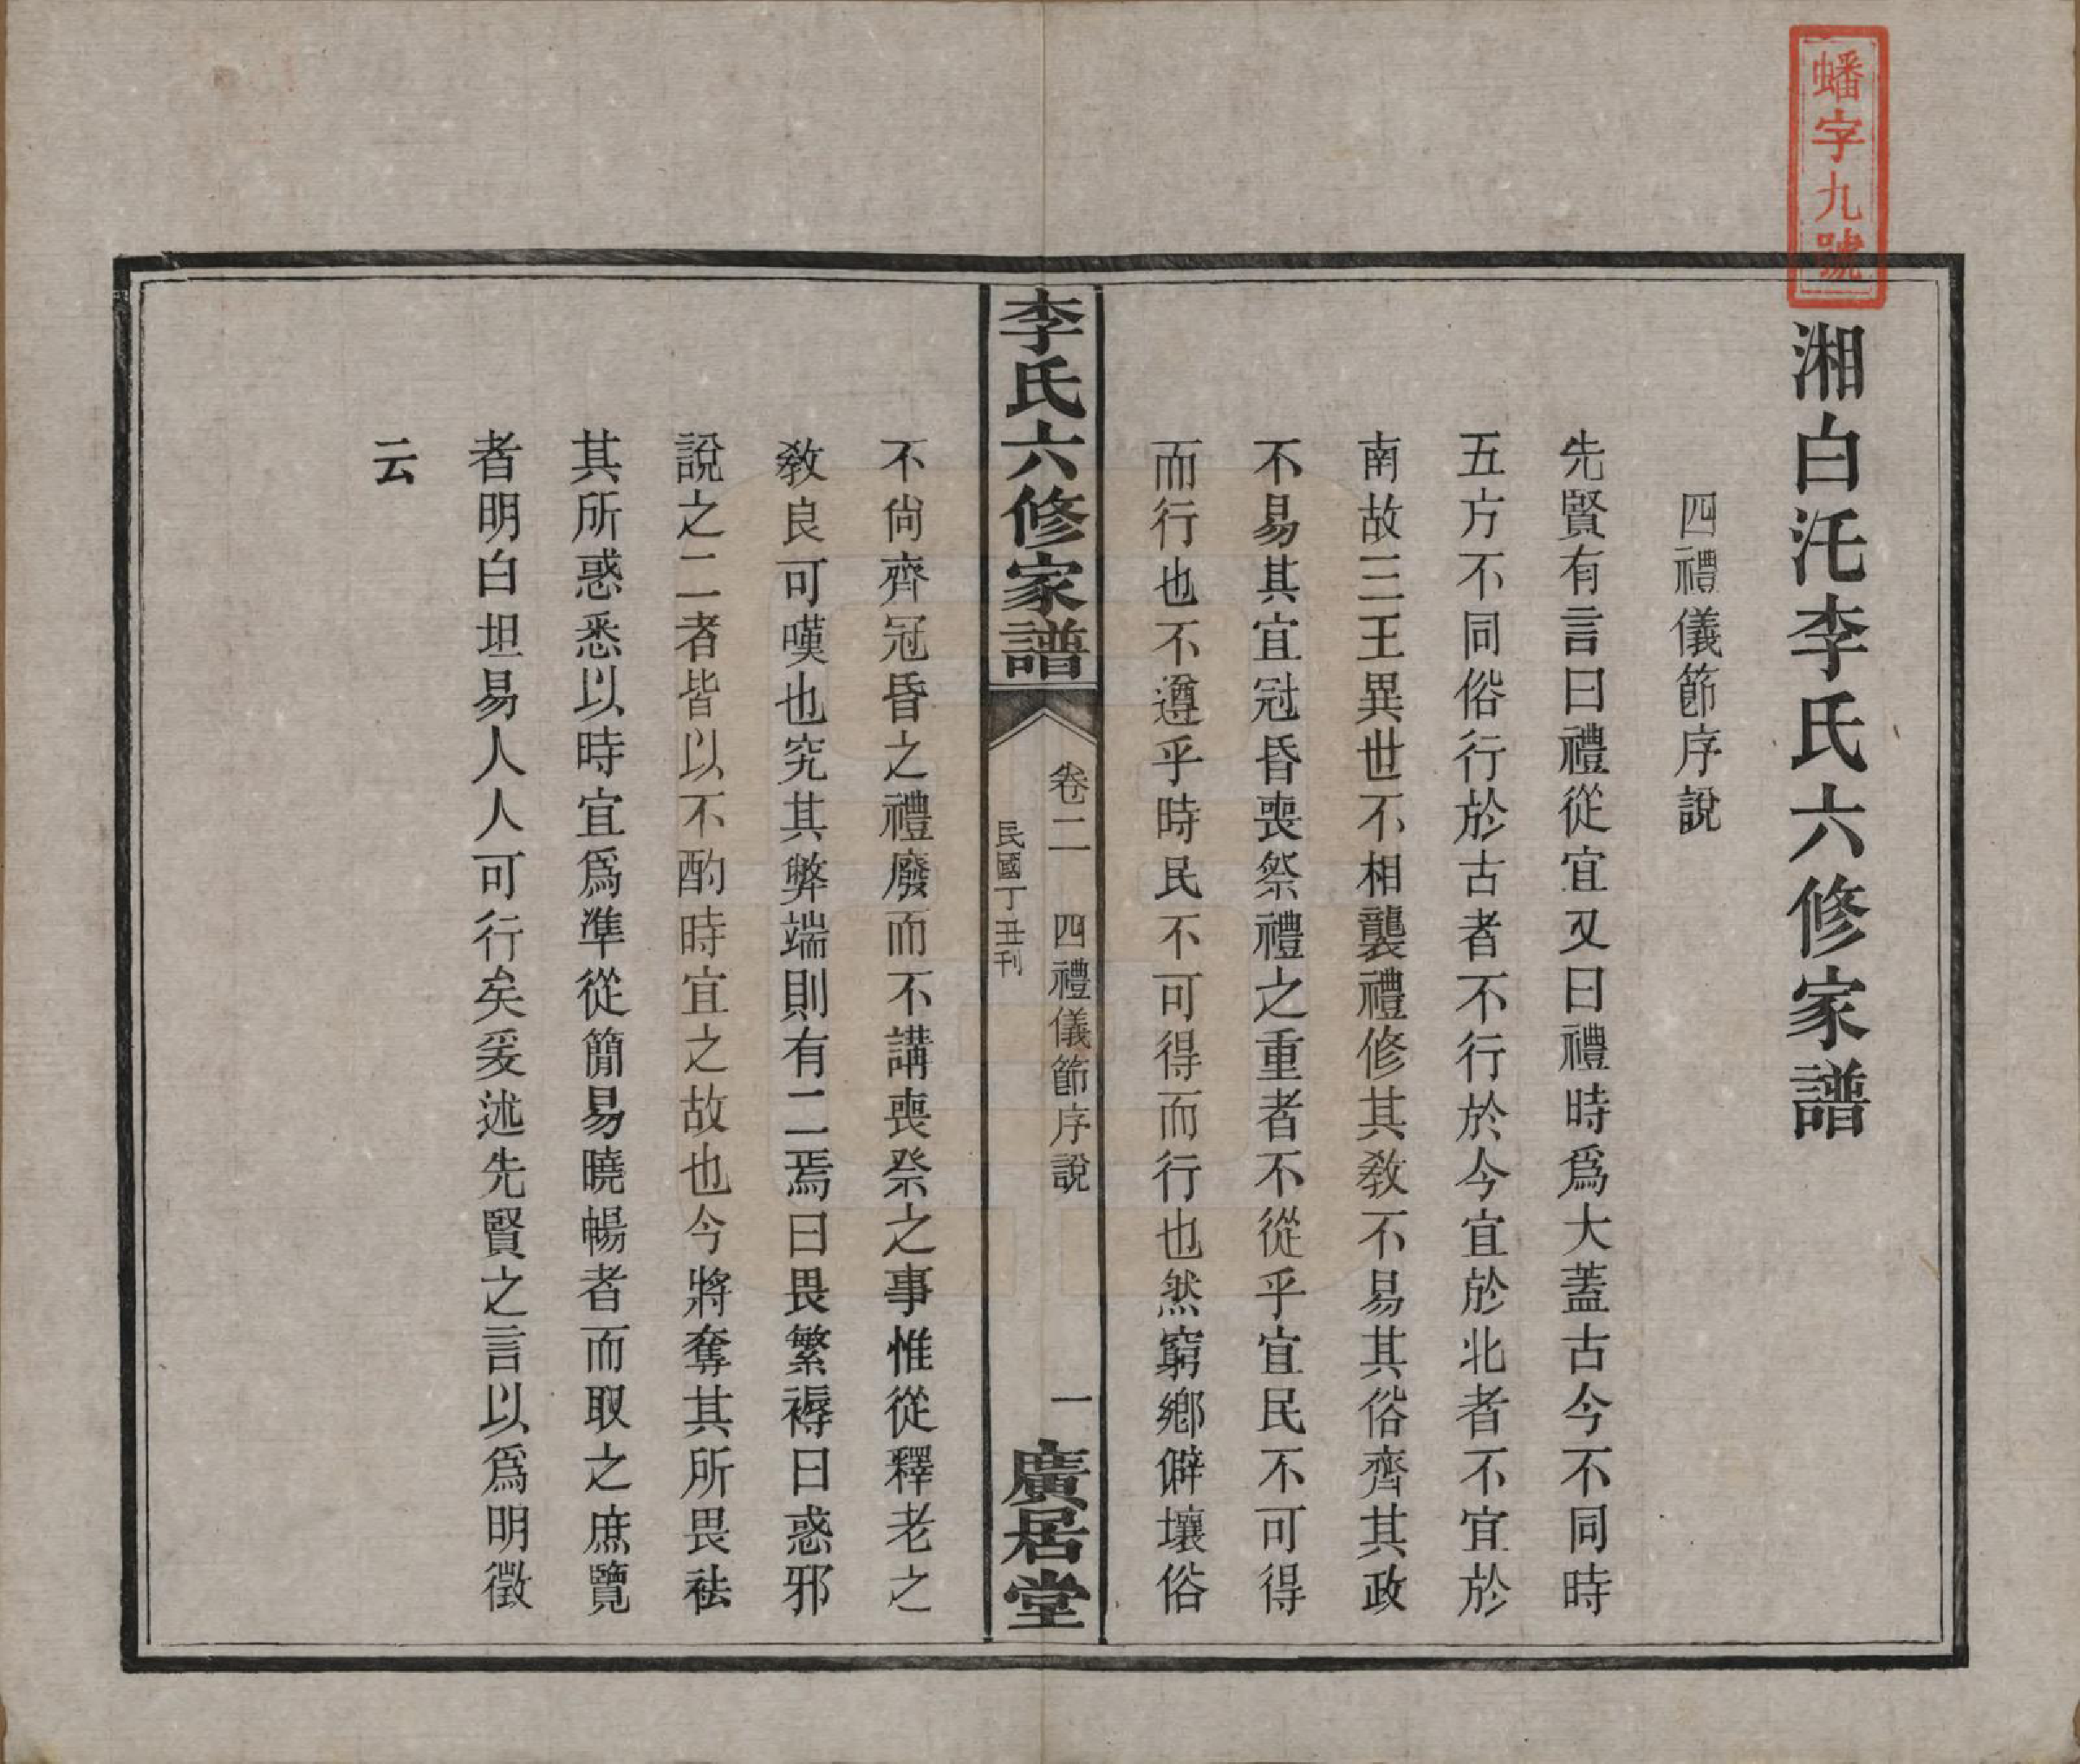 蟠字九號
湘白汑李氏六修家譜
四禮儀節序說
先賢有言曰禮從宜又曰禮時爲大蓋古今不同時
五方不同俗行於古者不行於今宜於北者不宜於
南故三王異世不相襲禮修其敎不易其俗齊其政
不易其宜冠昏喪祭禮之重者不從乎宜民不可得
而行也不遵乎時民不可得而行也然窮鄉僻壤俗
李氏六修家譜
卷二 四禮儀節序說 一
民國丁丑刊
廣居堂
不尙齊冠昏之禮廢而不講喪祭之事惟從釋老之
敎良可嘆也究其弊端則有二焉曰畏繁褥曰惑邪
說之二者皆以不酌時宜之故也今將奪其所畏袪
其所惑悉以時宜爲準從簡易曉暢者而取之庶覽
者明白坦易人人可行矣爰述先賢之言以爲明徵
云